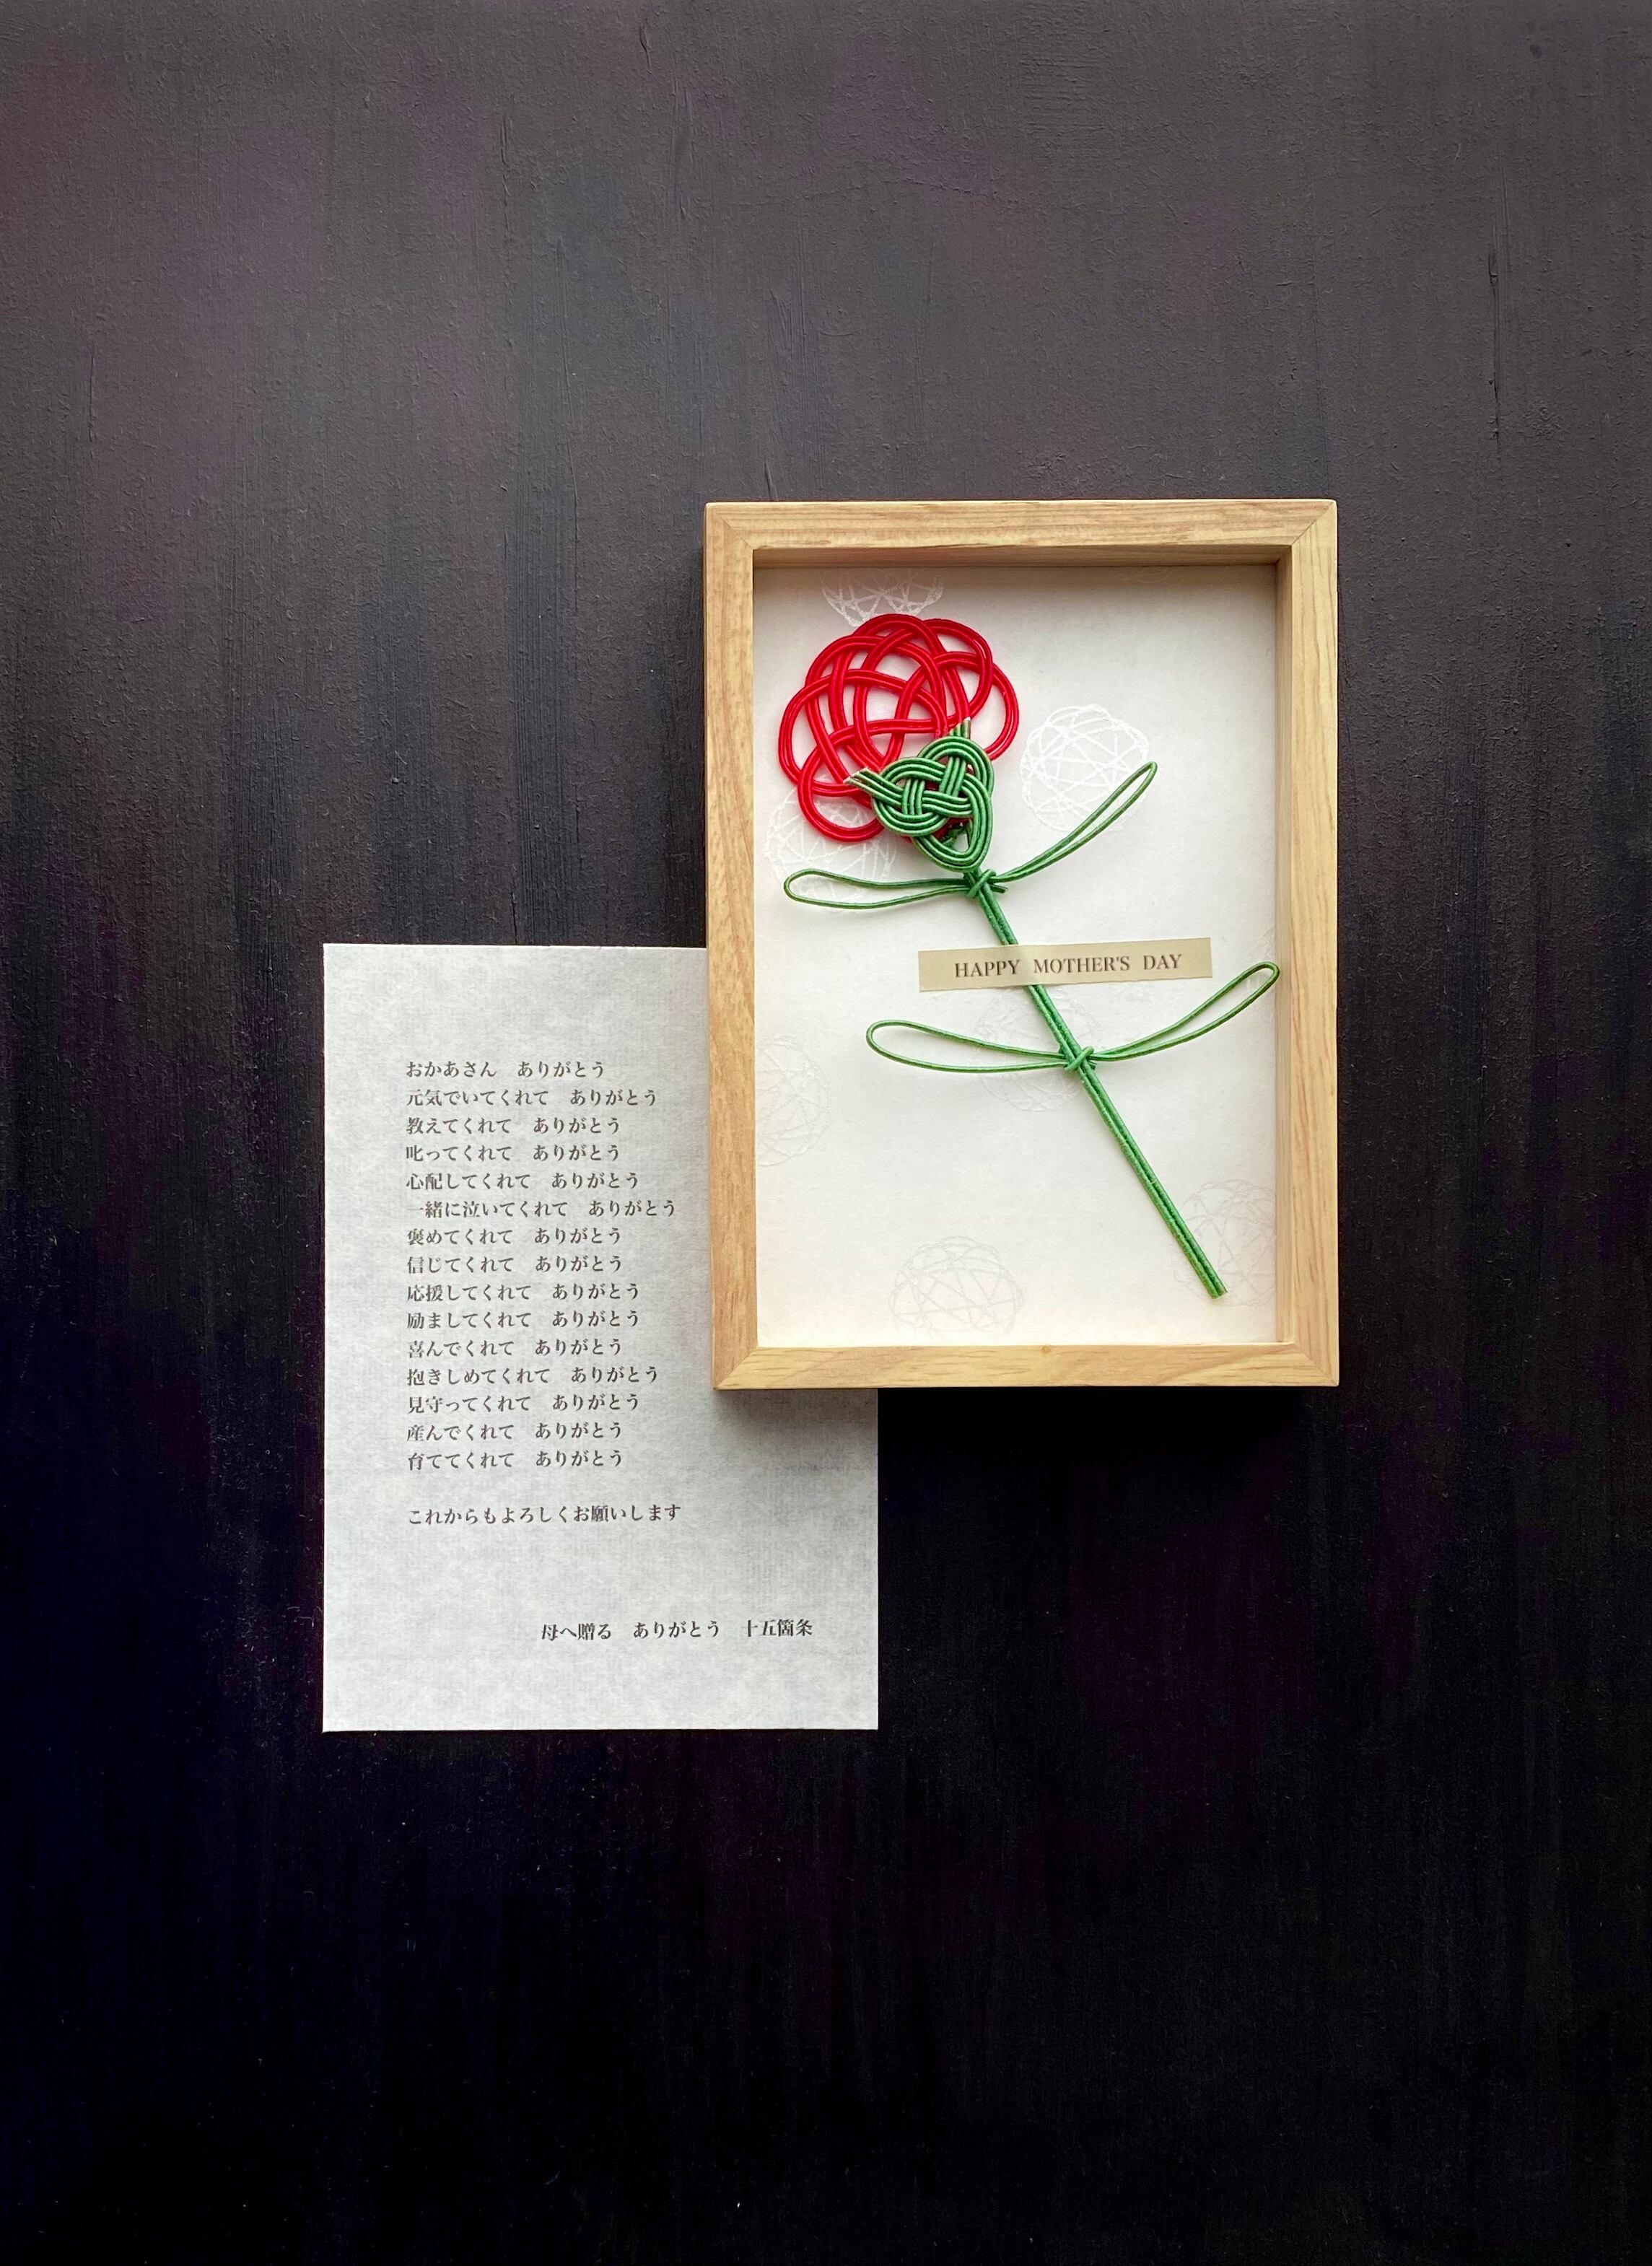 おかあさん　ありがとう
元気でいてくれて　ありがとう
教えてくれて　ありがとう
叱ってくれて　ありがとう
心配してくれて　ありがとう
一緒に泣いてくれて　ありがとう
褒めてくれて　ありがとう
信じてくれて　ありがとう
応援してくれて　ありがとう
励ましてくれて　ありがとう
喜んでくれて　ありがとう
抱きしめてくれて　ありがとう
見守ってくれて　ありがとう
産んでくれて　ありがとう
育ててくれて　ありがとう
これからもよろしくお願いします
母へ贈る　ありがとう　十五箇条
HAPPY MOTHER'S DAY